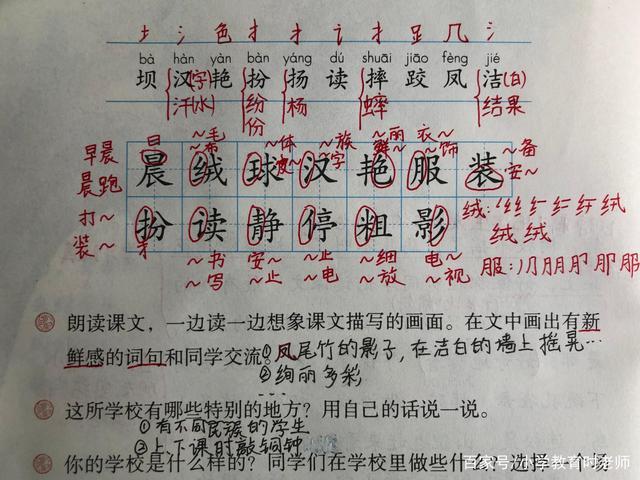 土 氵 色 扌 扌 讠 扌 足 几 氵
bà hàn yàn bàn yáng dú shuāi jiāo fèng jié
坝 汉(字) 艳 扮 扬 读 摔 跤 凤 洁(白)
汗(水) 纷 份 杨 蟀 结果
日 ~毛 ~布 ~体 ~皮 ~族 ~字 ~丽 鲜~ 衣~ ~饰 ~备 安~
早晨 晨跑 晨 绒 球 汉 艳 服 装
打~ 装~ 扮 读 静 停 粗 影
绒: 绒
绒 绒
服: 服
扌 ~书 ~写 安~ ~止 ~止 ~电 ~细 ~放 电~ ~视
朗读课文,一边读一边想象课文描写的画面。在文中画出有新
鲜感的词句和同学交流。①凤尾竹的影子,在洁白的墙上摇晃…
②绚丽多彩
这所学校有哪些特别的地方?用自己的话说一说。
①有不同民族的学生
②上下课时敲铜钟
你的学校是什么样的?同学们在学校里做些什么?选择一个场
百家号/小学教育时老师